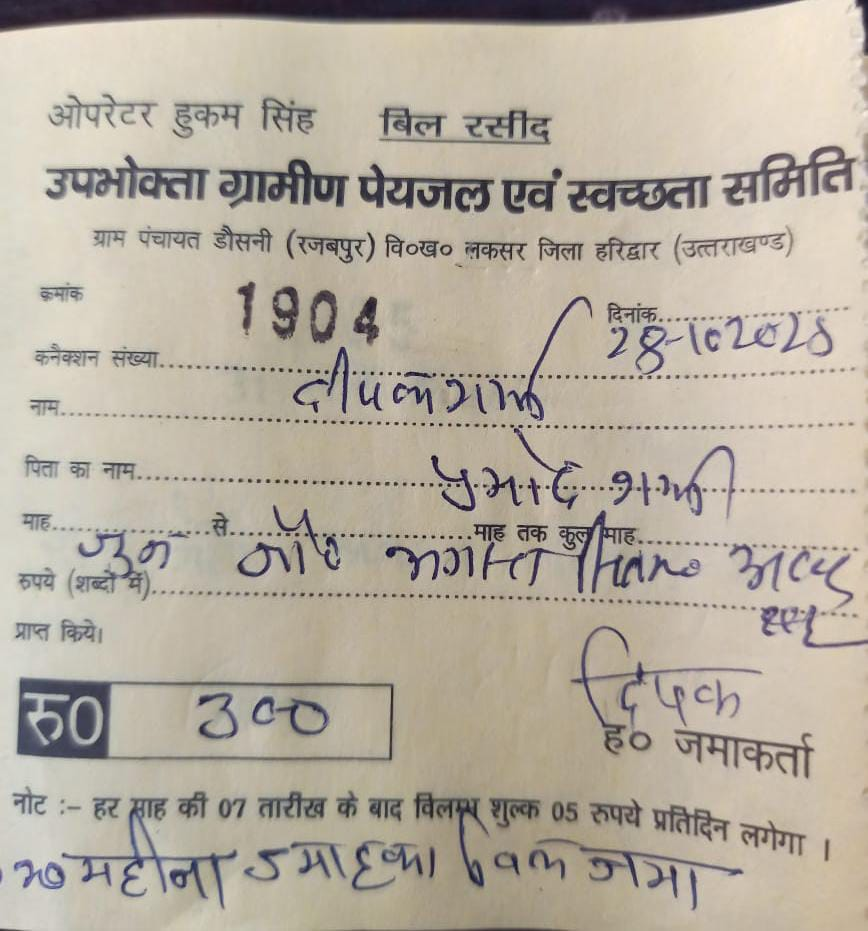 ओपरेटर हुकम सिंह बिल रसीद
उपभोक्ता ग्रामीण पेयजल एवं स्वच्छता समिति
ग्राम पंचायत डौसनी (रजबपुर) वि०ख० लकसर जिला हरिद्वार (उत्तराखण्ड)
कमांक 1904 दिनांक..........
28-10 2025
कनैक्शन संख्या..........
नाम.......... दीपक शर्मा
पिता का नाम.......... प्रमोद शर्मा
माह.......... से.......... माह तक कुल माह..........
जून अगस्त
रुपये (शब्दों में)..........
प्राप्त किये।
रु0 300
दिपक
ह० जमाकर्ता
नोट :- हर माह की 07 तारीख के बाद विलम्ब शुल्क 05 रुपये प्रतिदिन लगेगा ।
महीना 5 माह का बिल जमा